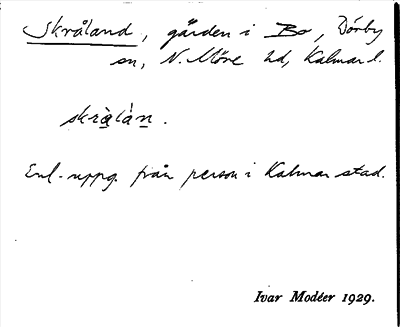 Skråland, gården i Bo, Dörby
sn, N. Möre hd, Kalmar l.
skràlàn.
Enl. uppg. från person i Kalmar stad.
Ivar Modéer 1929.